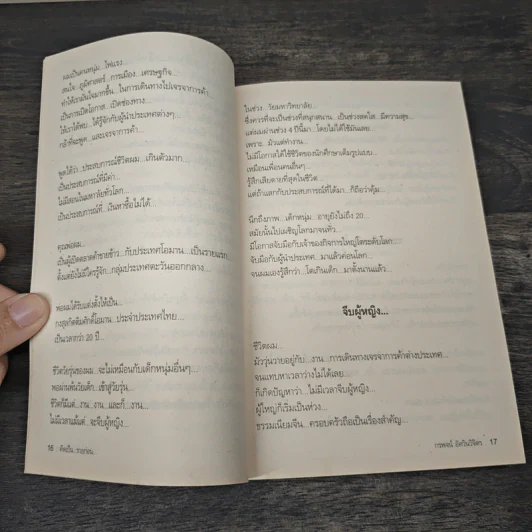 ผมเป็นคนหนุ่ม...ไฟแรง...
สนใจ...ภูมิศาสตร์...การเมือง...เศรษฐกิจ...
ทำให้เรามั่นใจมากขึ้น...ในการเดินทางไปเจรจาการค้า...
เป็นการเปิดโอกาส...เปิดช่องทาง...
ให้เราได้พบ...ได้รู้จักกับผู้นำประเทศต่างๆ...
กล้าที่จะพูด...และเจรจาการค้า...
พูดได้ว่า...ประสบการณ์ชีวิตผม...เกินตัวมาก...
เป็นประสบการณ์ที่มีค่า...
ไม่มีสอนในมหาลัยทั่วโลก...
เป็นประสบการณ์ที่...เงินหาซื้อไม่ได้...
คุณพ่อผม...
เป็นผู้เปิดตลาดค้าขายข้าว...กับประเทศโอมาน...เป็นรายแรก...
ตั้งแต่ยังไม่มีใครรู้จัก...กลุ่มประเทศตะวันออกกลาง...
พ่อผมได้รับแต่งตั้งให้เป็น...
กงสุลกิตติมศักดิ์โอมาน...ประจำประเทศไทย...
เป็นเวลากว่า 20 ปี...
ชีวิตวัยรุ่นของผม...จะไม่เหมือนกับเด็กหนุ่มอื่นๆ...
พอผ่านพ้นวัยเด็ก...เข้าสู่วัยรุ่น...
ชีวิตก็มีแต่...งาน...งาน...และก็...งาน...
ไม่มีเวลาแม้แต่...จะจีบผู้หญิง...
16 คิดเป็น...รวยก่อน..
ในช่วง...วัยมหาวิทยาลัย...
ซึ่งควรที่จะเป็นช่วงที่สนุกสนาน...เป็นช่วงสดใส...มีความสุข...
แต่ผมผ่านช่วง 4 ปีนี้มา...โดยไม่ได้ใช้มันเลย...
เพราะ...มัวแต่ทำงาน...
ไม่มีโอกาสได้ใช้ชีวิตของนักศึกษาเต็มรูปแบบ...
เหมือนเพื่อนคนอื่นๆ...
รู้สึกเสียดายที่สุดในชีวิต...
แต่ถ้าแลกกับประสบการณ์ที่ได้มา...ก็ถือว่าคุ้ม...
นึกถึงภาพ...เด็กหนุ่ม...อายุยังไม่ถึง 20...
สมัยนั้นไปเผชิญโลกมาจนทั่ว...
มีโอกาสจับมือกับเจ้าของกิจการใหญ่โตระดับโลก...
จับมือกับผู้นำประเทศ...มาแล้วค่อนโลก...
จนผมเองรู้สึกว่า...โตเกินเด็ก...มาตั้งนานแล้ว...
จีบผู้หญิง...
ชีวิตผม...
มัววุ่นวายอยู่กับ...งาน...การเดินทางเจรจาการค้าต่างประเทศ...
จนแทบหาเวลาว่างไม่ได้เลย...
ก็เกิดปัญหาว่า...ไม่มีเวลาจีบผู้หญิง...
ผู้ใหญ่ก็เริ่มเป็นห่วง...
ธรรมเนียมจีน...ครอบครัวถือเป็นเรื่องสำคัญ...
17